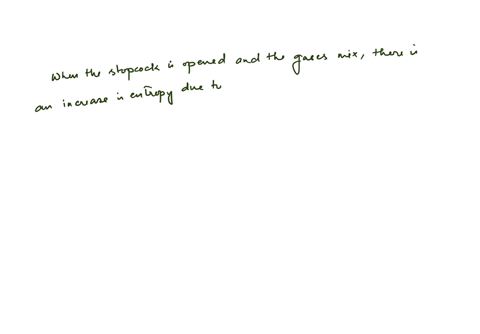 When the stopcock is opened and the gases mix, there is
an increase in entropy due to